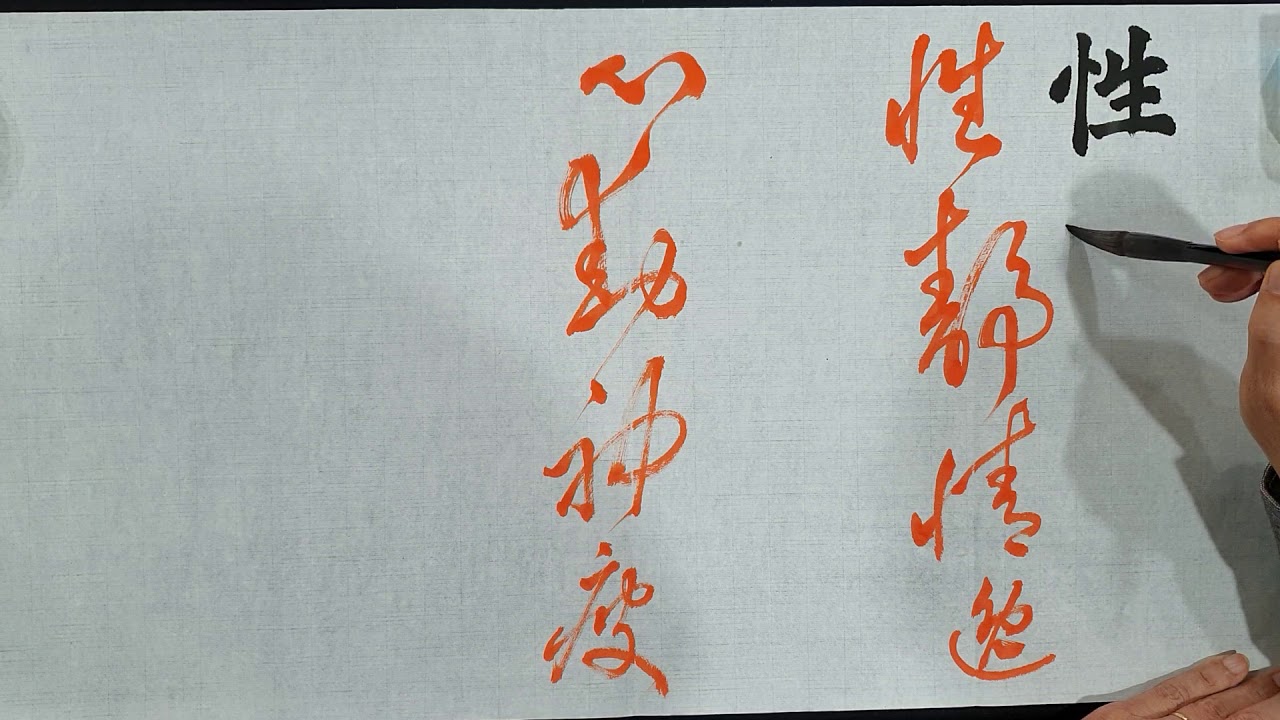 性
性靜情逸
心動神疲